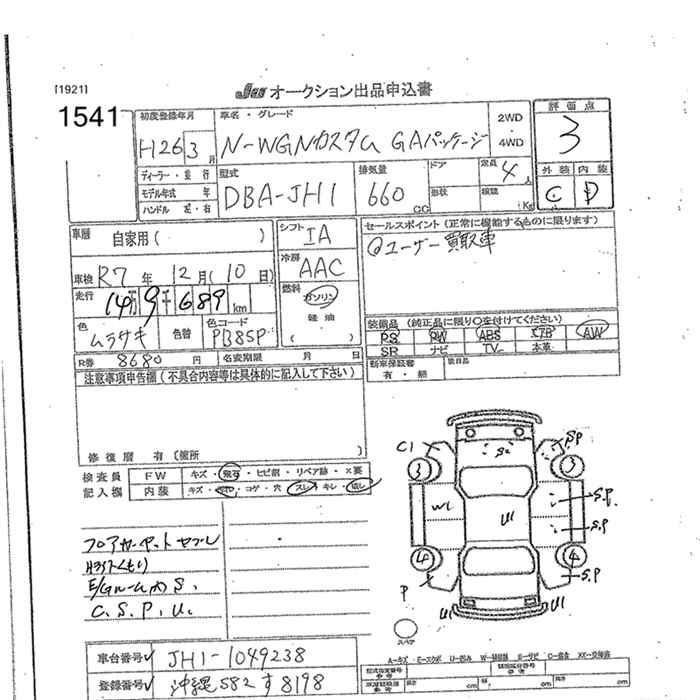 [1921]
JU オークション出品申込書
1541
初度登録年月
車名・グレード
2WD
・
4WD
評価点
H26 3月
N-WGNカスタム GAパッケージ
3
ディーラー・並行
モデル年式 年
ハンドル 左・右
型式
DBA-JH1
排気量
660
CC
ドア
形状
定員
4人
積載
Kg
外装 内装
C D
車歴
自家用( )
シフト
IA
セールスポイント(正常に機能するものに限ります)
@ユーザー買取車
車検 R7年 12月(10日)
冷房
AAC
走行 14万9千689km
燃料
ガソリン
軽油
( )
色
ムラサキ
色替
色コード
PB85P
装備品(純正品に限り○を付けてください)
PS PW ABS エアB AW
SR ナビ TV 本革
R券 8680円
名変期限 月 日
新車保証書
有・無
取扱品
注意事項申告欄(不具合内容等は具体的に記入して下さい)
修復歴 有〔箇所
検査員
記入欄
FW キズ・飛石・ヒビ割・リペア跡・×要
内装 キズ・汚れ・コゲ・穴・スレ・キレ・欠し
C1
S2
SP
3
3
W1
U1
S.P.
S.P
4
4
P
S.P
U1
U1
スペア
フロアカーペットセブレ
HライトくもI)
E/Gルーム内S.
C.S.P.U.
A-キズ E-エクボ U-凹み W-補修跡 S-サビ C-腐食 XX-交換済
車台番号 JH1-1049238
登録番号 沖縄582す8198
型式指定番号
類別区分番号
長さ cm 幅 cm 高さ cm